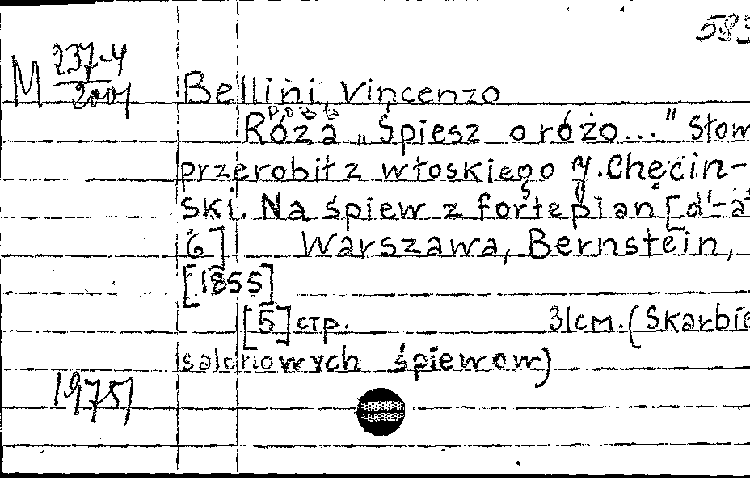 583
M 237-4
2001
Bellini, Vincenzo
Róża „Śpiesz o różo..." Słow
przerobił z włoskiego J. Chęcin-
ski. Na śpiew z fortepian [d'-a
6] Warszawa, Bernstein,
[1855]
[5] стр. 31см. (Skarbie
salonowych śpiewow)
19751